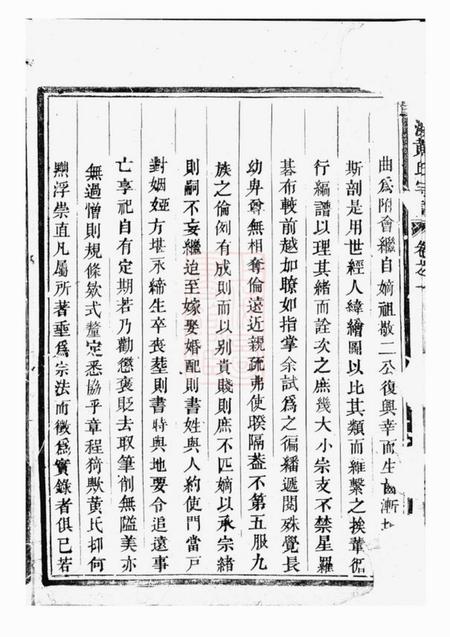 黃氏宗譜 卷之一
曲爲附會繼自嫡祖敬二公復興幸而生 漸
斯剖是用世經人緯繪圖以比其類而維繫之挨葉循
行編譜以理其緒而詮次之庶幾大小宗支不禁星羅
碁布較前越如瞭如指掌余試爲之徧繙遞閱殊覺長
幼與尊無相奪倫遠近親疏弗使睽隔葢不第五服九
族之倫例有成則而以别貴賤則庶不匹嫡以承宗緒
則嗣不妄繼迨至嫁娶婚配則書姓與人約使門當戸
對姻婭方堪承締生卒喪葬則書時與地要令追遠事
亡享祀自有定期若乃勸懲褒貶去取筆削無隘美亦
無過憎則規條欸式釐定悉協乎章程猗歟黃氏抑何
黜浮崇直凡屬所著埀爲宗法而徵爲實錄者俱已若